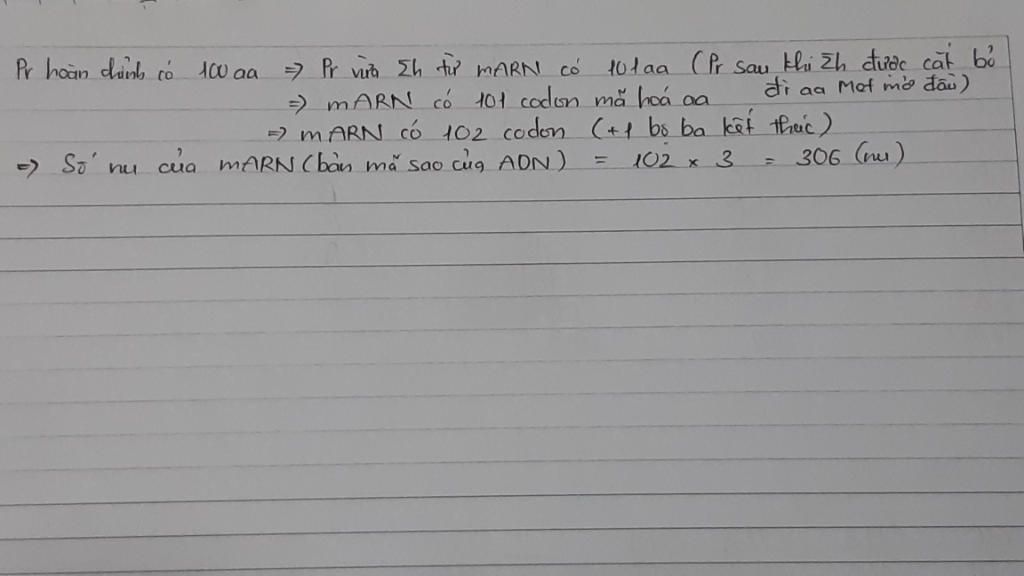 Pr hoàn chỉnh có 100 aa ⇒ Pr vừa Σh từ mARN có 101 aa (Pr sau khi Σh được cắt bỏ
đi aa Met mở đầu)
⇒ mARN có 101 codon mã hoá aa
⇒ mARN có 102 codon (+1 bộ ba kết thúc)
⇒ Số nu của mARN (bản mã sao của ADN) = 102 x 3 = 306 (nu)